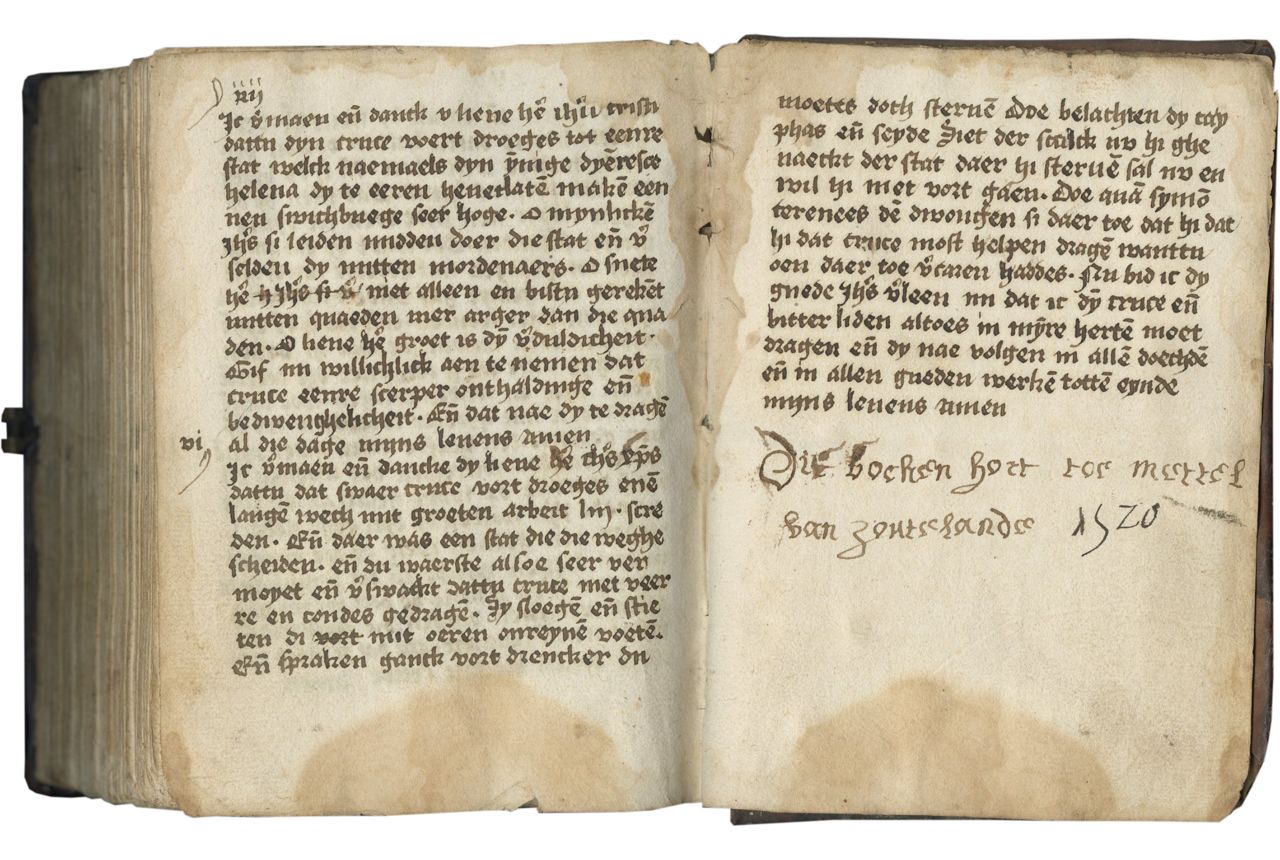 xij
Ic v̄maen en̄ danck v lieue hē ihū cristi
dattu dyn cruce voert droeges tot eenre
stat welck naemaels dyn ȳnige dyēresce
helena dy te eeren heuet latē makē een
nen swichbuege seer hoge. O mynlickē
Jhs̄ si leiden midden doer die stat en̄ v̄
selden dy mitten mordenaers. O suete
hē niet alleen en bistu gerekēt
mitten quaeden mer arger dan die qua
den. O lieue hē groet is dȳ v̄duldicheit.
Gif mi willichlick aen te nemen dat
cruce eenre scerper onthaldinge en̄
bedwenghelicheit. En̄ dat nae dy te dragē
vi al die dage mijns leuens amen
Ic v̄maen en̄ dancke dy lieue hē ihs̄ xp̄s
dattu dat swaer cruce vort droeges enē
langē wech mit groeten arbeit scre
den. En̄ daer was een stat die die weghe
scheiden. en̄ du waerste alsoe seer ver
moyet en̄ v̄swackt dattu cruce niet veer
re en condes gedragē. Sy sloegē en̄ stie
ten di vort mit oeren onreynē voetē.
En̄ spraken ganck vort drencker du
moetes doch steruē Doe belachten dy cay
phas en̄ seyde Siet der sculck nv hi ghe
naeckt der stat daer hi steruē sal nv en
wil hi niet vort gaen. Doe quā symō
terenees dē dwongen si daer toe dat hi dat
hi dat cruce most helpen dragē wanttu
oen daer toe v̄caren haddes. Nu bid ic dy
guede Jhs̄ v̄leen mi dat ic dȳ cruce en̄
bitter liden altoes in mȳre hertē moet
dragen en̄ dy nae volgen in allē doechdē
en̄ in allen gueden werkē tottē eynde
mijns leuens amen
Dit boeken hort toe mettel
van zoutelande 1520